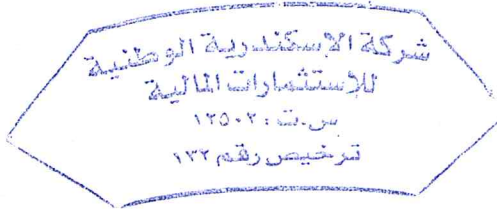 شركة الإسكندرية الوطنية
للإستثمارات المالية
س.ت : ١٢٥٠٢
ترخيص رقم ١٣٢